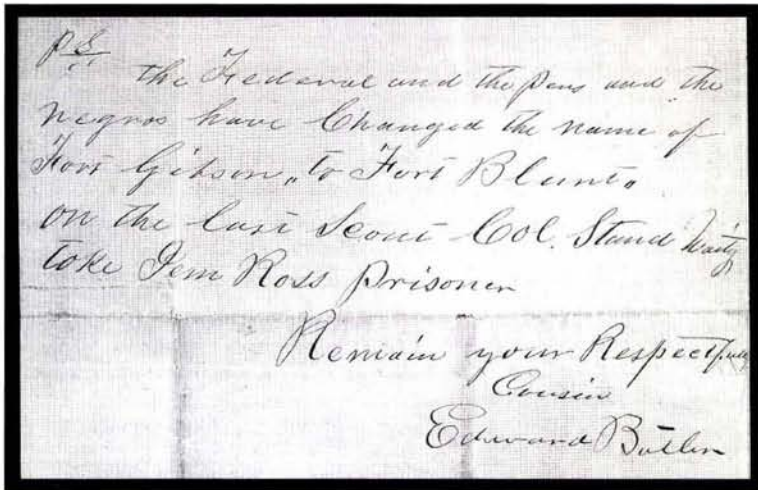 P.S.
the Federal and the Pins and the
Negros have Changed the name of
Fort Gibson "to Fort Blunt"
on the last Scout Col. Stand Waity
toke Jem Ross Prisoner
Remain your Respectfully
Cousin
Edward Butler